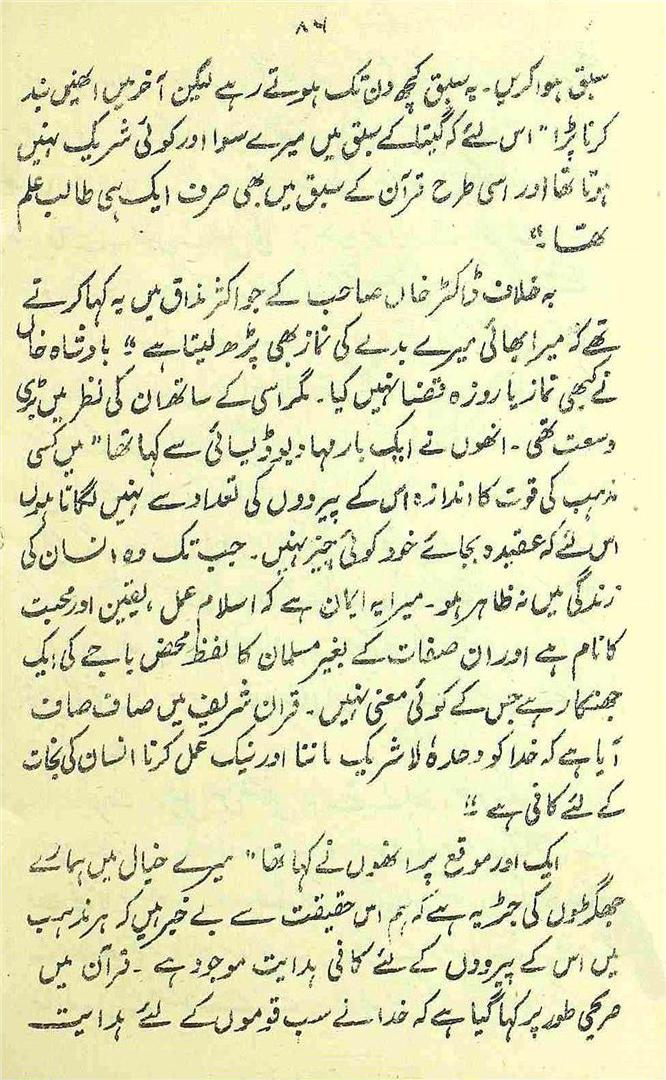 ۸۶
سبق ہوا کریں۔ یہ سبق کچھ دن تک ہوتے رہے لیکن آخر میں انھیں بند
کرنا پڑا "اس لئے کہ گیتا کے سبق میں میرے سوا اور کوئی شریک نہیں
ہوتا تھا اور اسی طرح قرآن کے سبق میں بھی صرف ایک ہی طالب علم
تھا۔"
بہ خلاف ڈاکٹر خاں صاحب کے جو اکثر مذاق میں یہ کہا کرتے
تھے کہ میرا بھائی میرے بدلے کی نماز بھی پڑھ لیتا ہے" بادشاہ خاں
نے کبھی نماز یا روزہ قضا نہیں کیا۔ مگر اسی کے ساتھ ان کی نظر میں بڑی
وسعت تھی۔ انھوں نے ایک بار مہادیو ڈیسائی سے کہا تھا "میں کسی
مذہب کی قوت کا اندازہ اس کے پیرووں کی تعداد سے نہیں لگاتا ہوں
اس لئے کہ عقیدہ بجائے خود کوئی چیز نہیں۔ جب تک وہ انسان کی
زندگی میں نہ ظاہر ہو۔ میرا یہ ایمان ہے کہ اسلام عمل، یقین اور محبت
کا نام ہے اور ان صفات کے بغیر مسلمان کا لفظ محض باجے کی ایک
جھنکار ہے جس کے کوئی معنی نہیں۔ قرآن شریف میں صاف صاف
آیا ہے کہ خدا کو وحدہٗ لا شریک ماننا اور نیک عمل کرنا انسان کی نجات
کے لئے کافی ہے"
ایک اور موقع پر انھوں نے کہا تھا "میرے خیال میں ہمارے
جھگڑوں کی جڑ یہ ہے کہ ہم اس حقیقت سے بے خبر ہیں کہ ہر مذہب
میں اس کے پیرووں کے لئے کافی ہدایت موجود ہے۔ قرآن میں
صریحی طور پر کہا گیا ہے کہ خدا نے سب قوموں کے لئے ہدایت